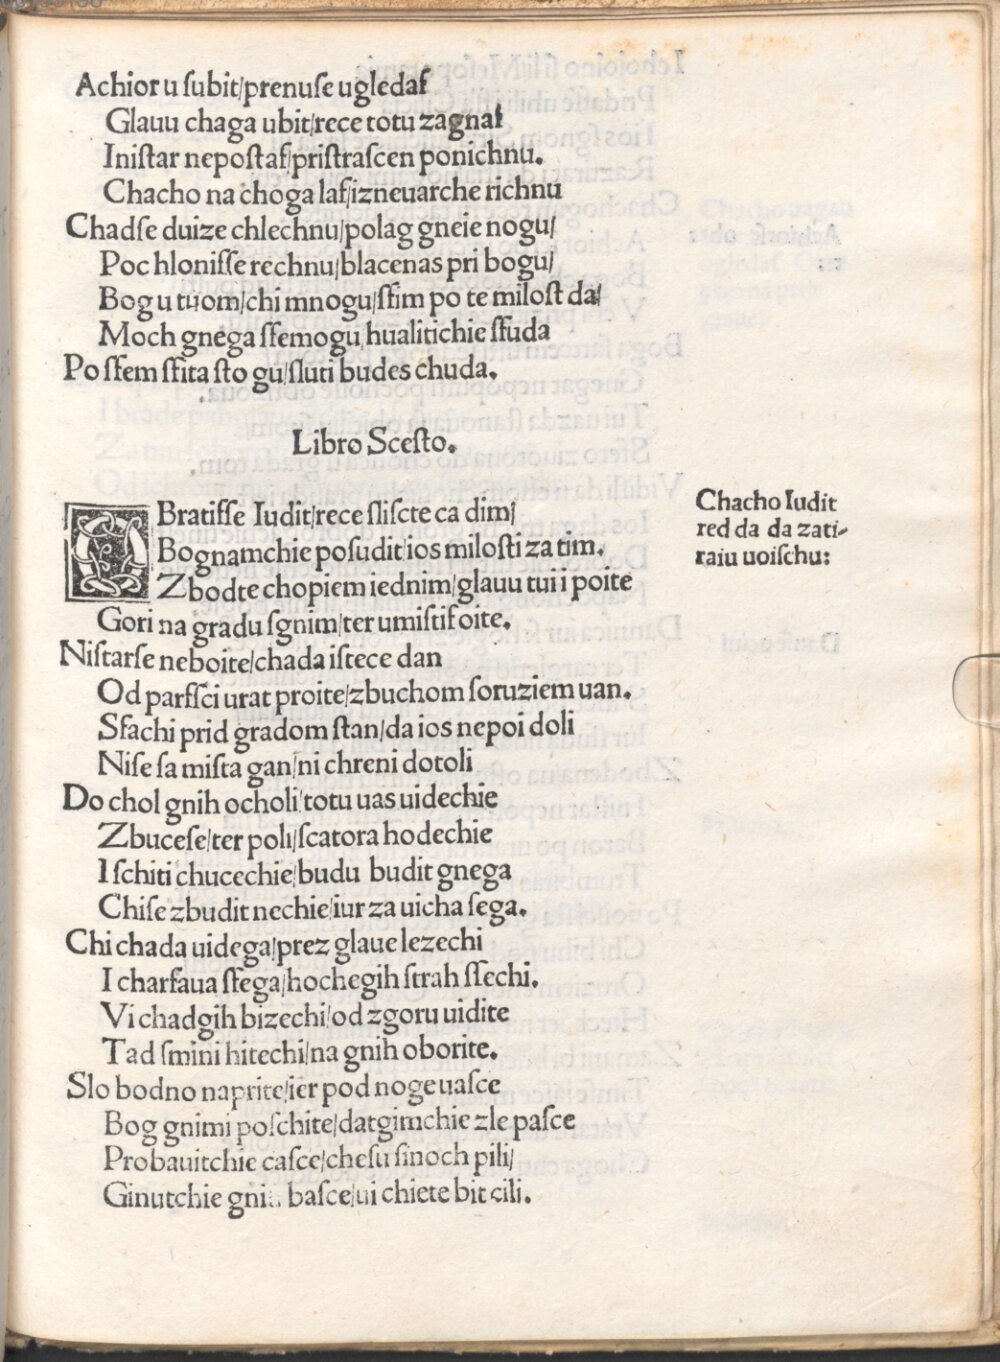 Achior u ſubit/prenuſe ugledaſ
Glauu chaga ubit/rece totu zagnaſ
Iniſtar nepoſtaſ/priſtraſcen ponichnu.
Chacho na choga laſ/izneuarche richnu
Chadſe duize chlechnu/polag gneie nogu/
Poc hloniſſe rechnu/blacenas pri bogu/
Bog u tuom/chi mnogu/ſſim po te miloſt da/
Moch gnega ſſemogu hualitichie ſſuda
Po ſſem ſſita ſto gu/ſluti budes chuda.
Libro Sceſto.
Bratiſſe Iudit/rece ſliſcte ca dim/
Bognamchie poſudit/ios miloſti za tim.
Zbodte chopiem iednim/glauu tu i i poite
Gori na gradu ſgnim/ter umiſtiſ oite.
Niſtarſe neboite/chada iſtece dan
Od parſſci urat proite/zbuchom ſoruziem uan.
Sfachi prid gradom ſtan/da ios nepoi doli
Niſe ſa miſta gan/ni chreni dotoli
Do chol gnih ocholi/totu uas uidechie
Zbuceſe/ter poli/ſcatora hodechie
I ſchiti chucechie/budu budit gnega
Chiſe zbudit nechie/iur za uicha ſega.
Chi chada uidega/prez glaue lezechi
I charfaua ſſega/hochegih ſtrah ſſechi.
Vi chadgih bizechi/od zgoru uidite
Tad ſmini hitechi/na gnih oborite.
Slo bodno naprite/ier pod noge uaſce
Bog gnimi poſchite/datgimchie zle paſce
Probauitchie caſce/cheſu ſinoch pili/
Ginutchie baſce/ui chiete bit cili.
Chacho Iudit
red da da zati-
raiu uoiſchu: